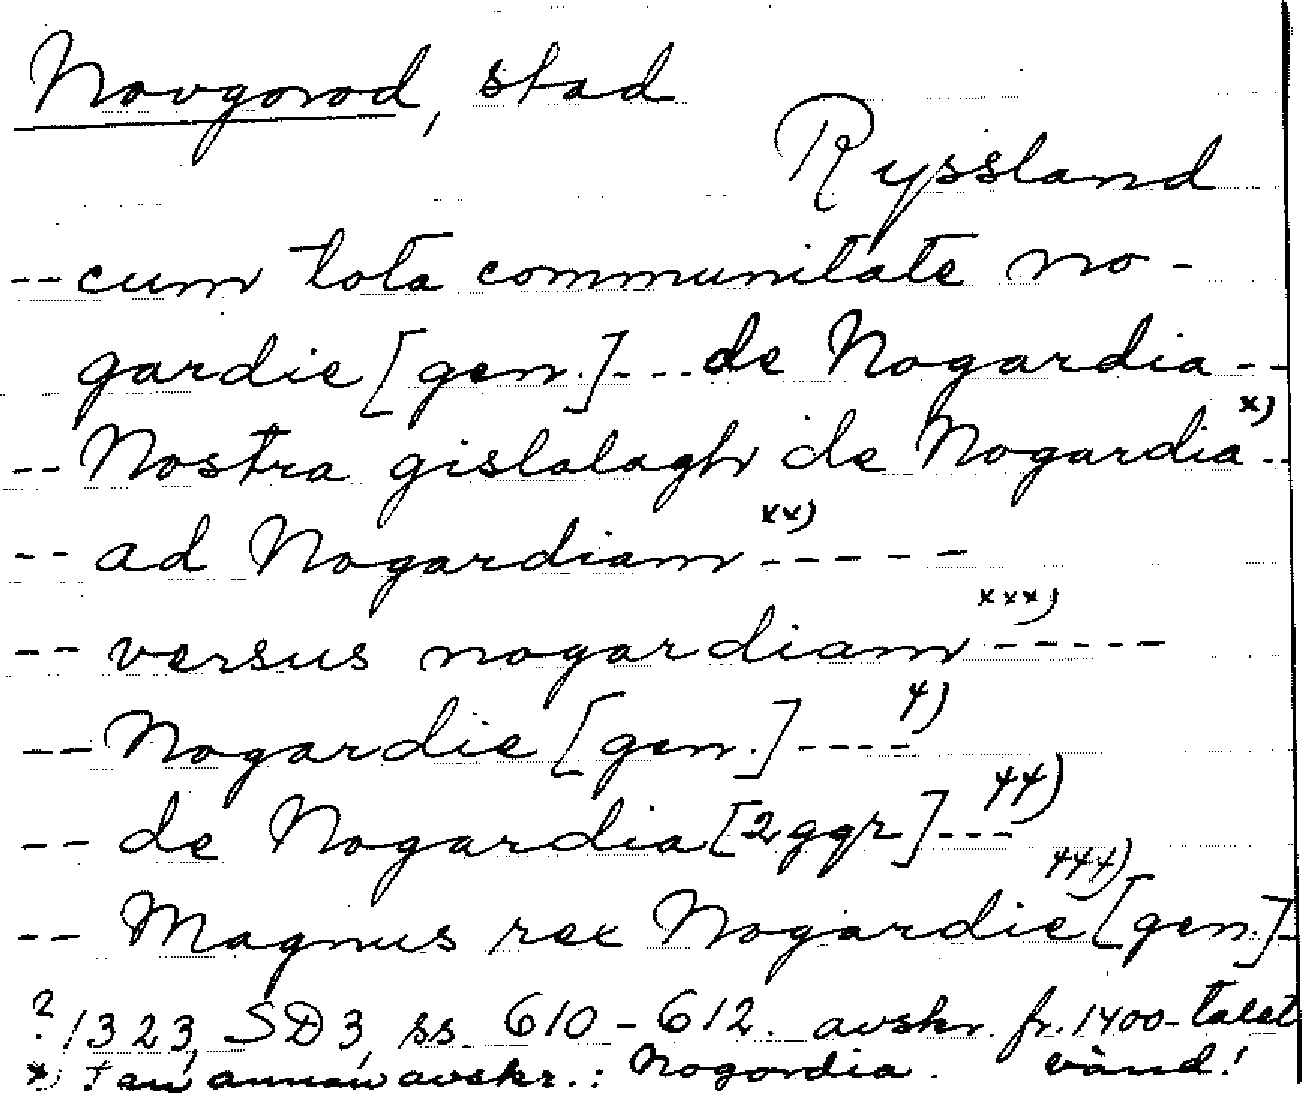 Novgorod, stad
Ryssland
-- cum tota communitate no-
gardie [gen.] --- de Nogardia --
-- Nostra gislalagh de Nogardia x) --
-- ad Nogardiam xx) -----
-- versus nogardiam xxx) -----
-- Nogardie [gen.] ---- +)
-- de Nogardia [2 ggr] --- ++)
-- Magnus rex Nogardie +++) [gen.] --
? 1323, SD3, ss. 610-612. avskr. fr. 1400-talet
x) I en annan avskr.: Nogordia. vänd!